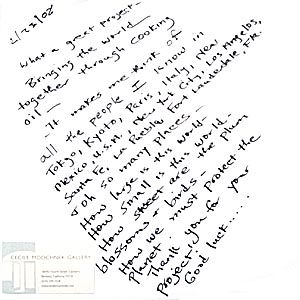 2/22/02
What a great project-
Bringing the world
together through cooking
oil-
It makes me think of
all the people I know in
Tokyo, Kyoto, Paris, Italy, New
Mexico, U.S.A. New York City, Los Angeles,
Santa Fe, La Puebla Fort Lauderdale, Fla.
Oh so many places-
How large is this world-
How small is this world-
How sweet are the plum
blossoms & birds-
How we must protect the
Planet-
Thank you for your
Project-
Good luck......
CECILE MOOCHNEK GALLERY